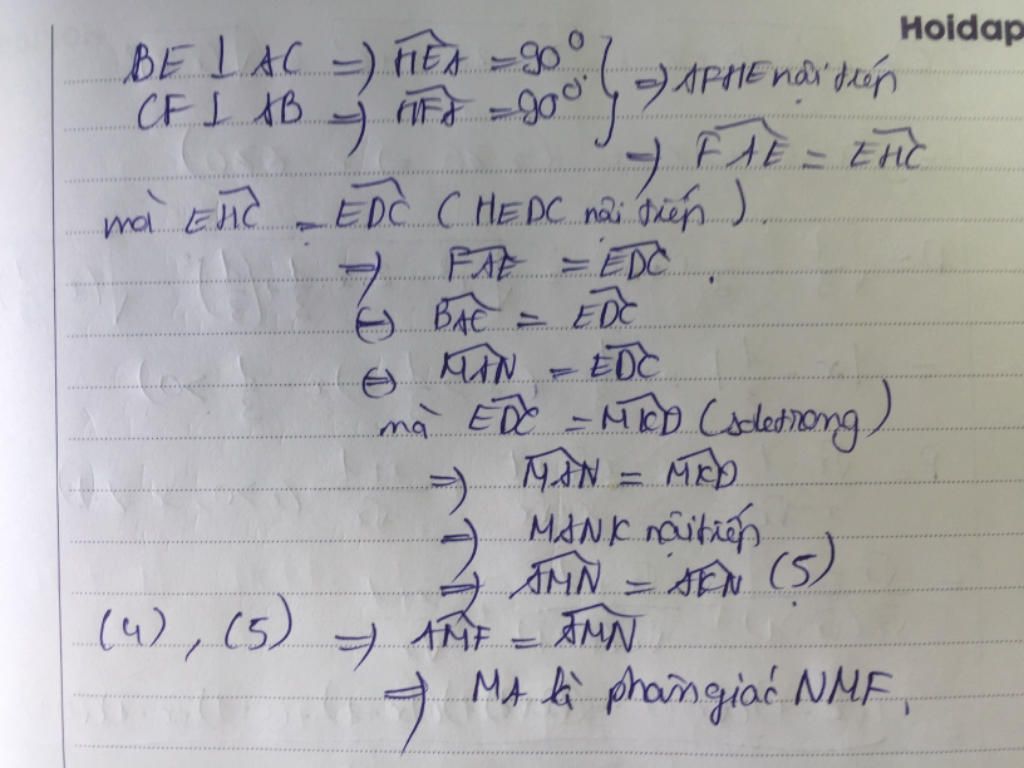 Hoidap
BE ⊥ AC => \widehat{HEA} = 90° } => AFHE nội tiếp
CF ⊥ AB => \widehat{HFA} = 90°
=> \widehat{FAE} = \widehat{EHC}
mà \widehat{EHC} = \widehat{EDC} (HEDC nội tiếp).
=> \widehat{FAE} = \widehat{EDC}.
<=> \widehat{BAC} = \widehat{EDC}
<=> \widehat{MAN} = \widehat{EDC}
mà \widehat{EDC} = \widehat{MKD} (so le trong)
=> \widehat{MAN} = \widehat{MKD}
=> MANK nội tiếp
=> \widehat{AMN} = \widehat{AKN} (5)
(4), (5) => \widehat{AMF} = \widehat{AMN}
=> MA là phân giác NMF.